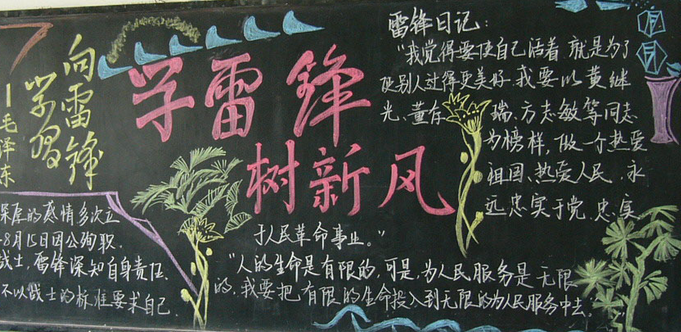 向雷锋
学习
—毛泽东
学雷锋
树新风
深厚的感情多次立
8月15日因公殉职.
战士,雷锋深知自身责任.
不以战士的标准要求自己.
雷锋日记:
"我觉得要使自己活着,就是为了
使别人过得更美好.我要以黄继
光、董存瑞、方志敏等同志
为榜样,做一个热爱
祖国、热爱人民、永
远忠实于党、忠实
于人民革命事业。"
"人的生命是有限的,可是,为人民服务是无限
的,我要把有限的生命投入到无限的为人民服务中去。